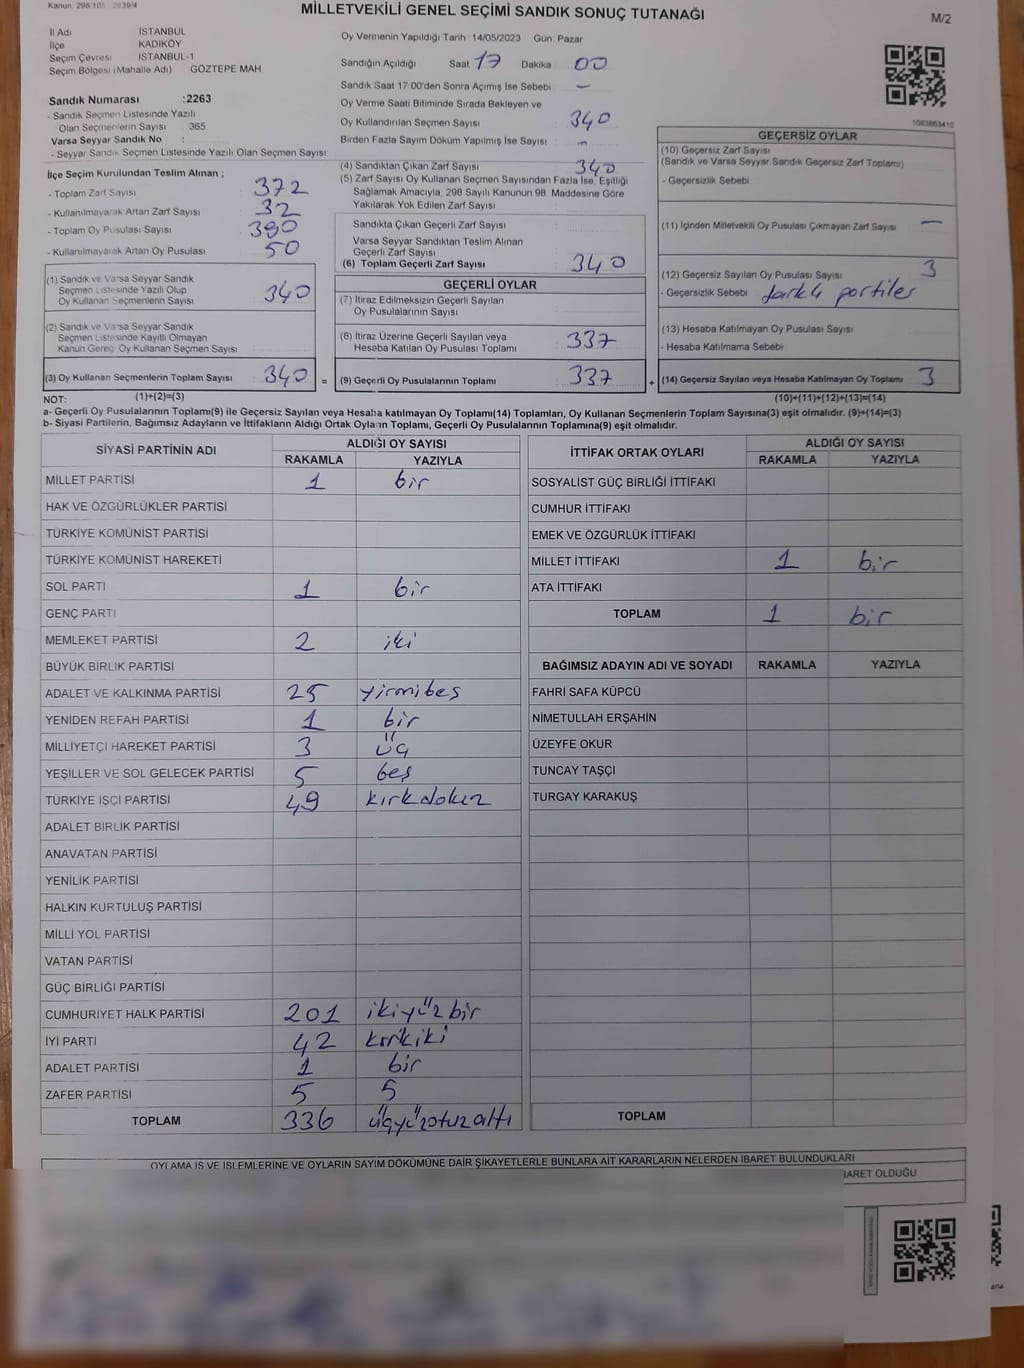 Kanun: 298/105 2839/4
MİLLETVEKİLİ GENEL SEÇİMİ SANDIK SONUÇ TUTANAĞI
M/2
İl Adı İSTANBUL
İlçe KADIKÖY
Seçim Çevresi İSTANBUL-1
Seçim Bölgesi (Mahalle Adı) GÖZTEPE MAH
Sandık Numarası :2263
- Sandık Seçmen Listesinde Yazılı
Olan Seçmenlerin Sayısı 365
Varsa Seyyar Sandık No :
- Seyyar Sandık Seçmen Listesinde Yazılı Olan Seçmen Sayısı:
İlçe Seçim Kurulundan Teslim Alınan ;
- Toplam Zarf Sayısı 372
- Kullanılmayarak Artan Zarf Sayısı 32
- Toplam Oy Pusulası Sayısı 390
- Kullanılmayarak Artan Oy Pusulası 50
(1) Sandık ve Varsa Seyyar Sandık
Seçmen Listesinde Yazılı Olup
Oy Kullanan Seçmenlerin Sayısı 340
(2) Sandık ve Varsa Seyyar Sandık
Seçmen Listesinde Kayıtlı Olmayan
Kanun Gereği Oy Kullanan Seçmen Sayısı
(3) Oy Kullanan Seçmenlerin Toplam Sayısı 340 =
Oy Vermenin Yapıldığı Tarih :14/05/2023 Gün: Pazar
Sandığın Açıldığı Saat 17 Dakika 00
Sandık Saat 17:00'den Sonra Açımış İse Sebebi -
Oy Verme Saati Bitiminde Sırada Bekleyen ve
Oy Kullandırılan Seçmen Sayısı 340
Birden Fazla Sayım Döküm Yapılmış İse Sayısı -
(4) Sandıktan Çıkan Zarf Sayısı 340
(5) Zarf Sayısı Oy Kullanan Seçmen Sayısından Fazla İse, Eşitliği
Sağlamak Amacıyla, 298 Sayılı Kanunun 98. Maddesine Göre
Yakılarak Yok Edilen Zarf Sayısı
Sandıkta Çıkan Geçerli Zarf Sayısı
Varsa Seyyar Sandıktan Teslim Alınan
Geçerli Zarf Sayısı
(6) Toplam Geçerli Zarf Sayısı 340
GEÇERLİ OYLAR
(7) İtiraz Edilmeksizin Geçerli Sayılan
Oy Pusulalarının Sayısı
(8) İtiraz Üzerine Geçerli Sayılan veya
Hesaba Katılan Oy Pusulası Toplamı 337
(9) Geçerli Oy Pusulalarının Toplamı 337 +
1083863410
GEÇERSİZ OYLAR
(10) Geçersiz Zarf Sayısı
(Sandık ve Varsa Seyyar Sandık Geçersiz Zarf Toplamı)
- Geçersizlik Sebebi
(11) İçinden Milletvekili Oy Pusulası Çıkmayan Zarf Sayısı -
(12) Geçersiz Sayılan Oy Pusulası Sayısı 3
- Geçersizlik Sebebi farklı partiler
(13) Hesaba Katılmayan Oy Pusulası Sayısı
- Hesaba Katılmama Sebebi
(14) Geçersiz Sayılan veya Hesaba Katılmayan Oy Toplamı 3
NOT: (1)+(2)=(3) (10)+(11)+(12)+(13)=(14)
a- Geçerli Oy Pusulalarının Toplamı(9) ile Geçersiz Sayılan veya Hesaba katılmayan Oy Toplamı(14) Toplamları, Oy Kullanan Seçmenlerin Toplam Sayısına(3) eşit olmalıdır. (9)+(14)=(3)
b- Siyasi Partilerin, Bağımsız Adayların ve İttifakların Aldığı Ortak Oyların Toplamı, Geçerli Oy Pusulalarının Toplamına(9) eşit olmalıdır.
SİYASİ PARTİNİN ADI ALDIĞI OY SAYISI
RAKAMLA YAZIYLA
MİLLET PARTİSİ 1 bir
HAK VE ÖZGÜRLÜKLER PARTİSİ
TÜRKİYE KOMÜNİST PARTİSİ
TÜRKİYE KOMÜNİST HAREKETİ
SOL PARTİ 1 bir
GENÇ PARTİ
MEMLEKET PARTİSİ 2 iki
BÜYÜK BİRLİK PARTİSİ
ADALET VE KALKINMA PARTİSİ 25 yirmibeş
YENİDEN REFAH PARTİSİ 1 bir
MİLLİYETÇİ HAREKET PARTİSİ 3 üç
YEŞİLLER VE SOL GELECEK PARTİSİ 5 beş
TÜRKİYE İŞÇİ PARTİSİ 49 kırkdokuz
ADALET BİRLİK PARTİSİ
ANAVATAN PARTİSİ
YENİLİK PARTİSİ
HALKIN KURTULUŞ PARTİSİ
MİLLİ YOL PARTİSİ
VATAN PARTİSİ
GÜÇ BİRLİĞİ PARTİSİ
CUMHURİYET HALK PARTİSİ 201 ikiyüzbir
İYİ PARTİ 42 kırkiki
ADALET PARTİSİ 1 bir
ZAFER PARTİSİ 5 5
TOPLAM 336 üçyüzotuzaltı
İTTİFAK ORTAK OYLARI ALDIĞI OY SAYISI
RAKAMLA YAZIYLA
SOSYALİST GÜÇ BİRLİĞİ İTTİFAKI
CUMHUR İTTİFAKI
EMEK VE ÖZGÜRLÜK İTTİFAKI
MİLLET İTTİFAKI 1 bir
ATA İTTİFAKI
TOPLAM 1 bir
BAĞIMSIZ ADAYIN ADI VE SOYADI RAKAMLA YAZIYLA
FAHRİ SAFA KÜPCÜ
NİMETULLAH ERŞAHİN
ÜZEYFE OKUR
TUNCAY TAŞÇI
TURGAY KARAKUŞ
TOPLAM
OYLAMA İŞ VE İŞLEMLERİNE VE OYLARIN SAYIM DÖKÜMÜNE DAİR ŞİKAYETLERLE BUNLARA AİT KARARLARIN NELERDEN İBARET BULUNDUKLARI
İBARET OLDUĞU